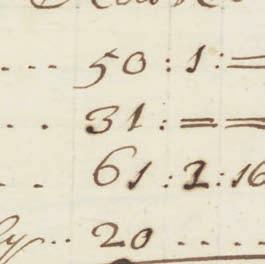 .... 50 : 1 : =
.. 31 : = =
.. 61 : 2 : 16
ly .. 20 ....